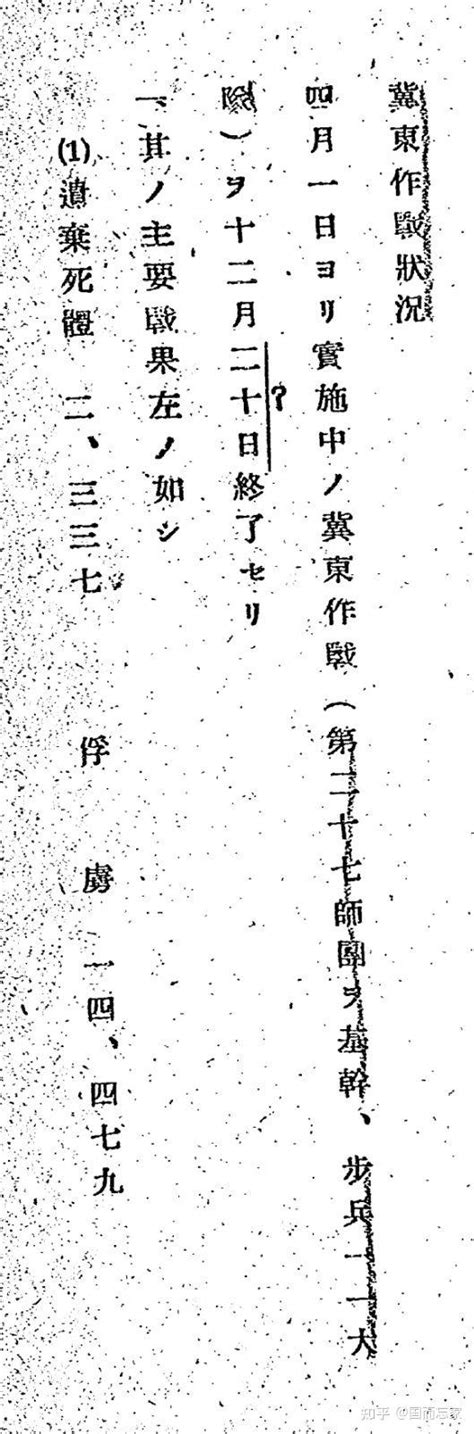 冀東作戰狀況
四月一日ヨリ實施中ノ冀東作戰(第二十七師團ヲ基幹、步兵一一大
隊)ヲ十二月二十日終了セリ
?
一、其ノ主要戰果左ノ如シ
(1)遺棄死體 二、三三七 俘虜 一四、四七九
知乎 @国而忘家